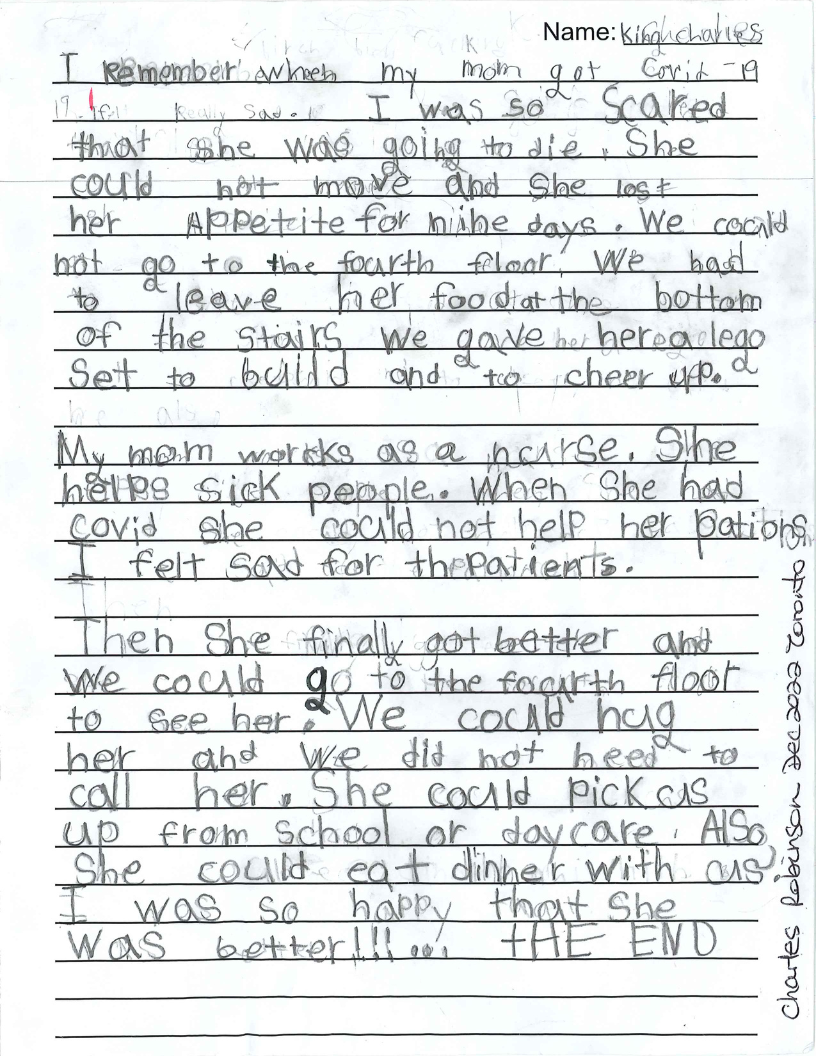 Name: King charles
I Remember when my mom got Covid-19
19. I felt Really Sad. I was so Scared
that she was going to die. She
could not move and She lost
her Appetite for nine days. We could
not go to the fourth floor. We had
to leave her food at the bottom
of the stairs We gave her a lego
Set to build and to cheer up.
My mom works as a nurse. She
helps sick people. When She had
covid she could not help her pations
I felt sad for the patients.
Then She finally got better and
We could go to the fourth floor
to see her. We could hug
her and we did not need to
call her. She could Pick us
up from school or daycare. AlSo
She could eat dinner with us.
I was so happy that She
was better!!!... tHE END
Charles Robinson Dec 2022 Toronto